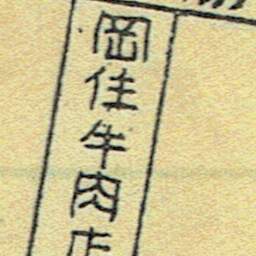 岡住牛肉店